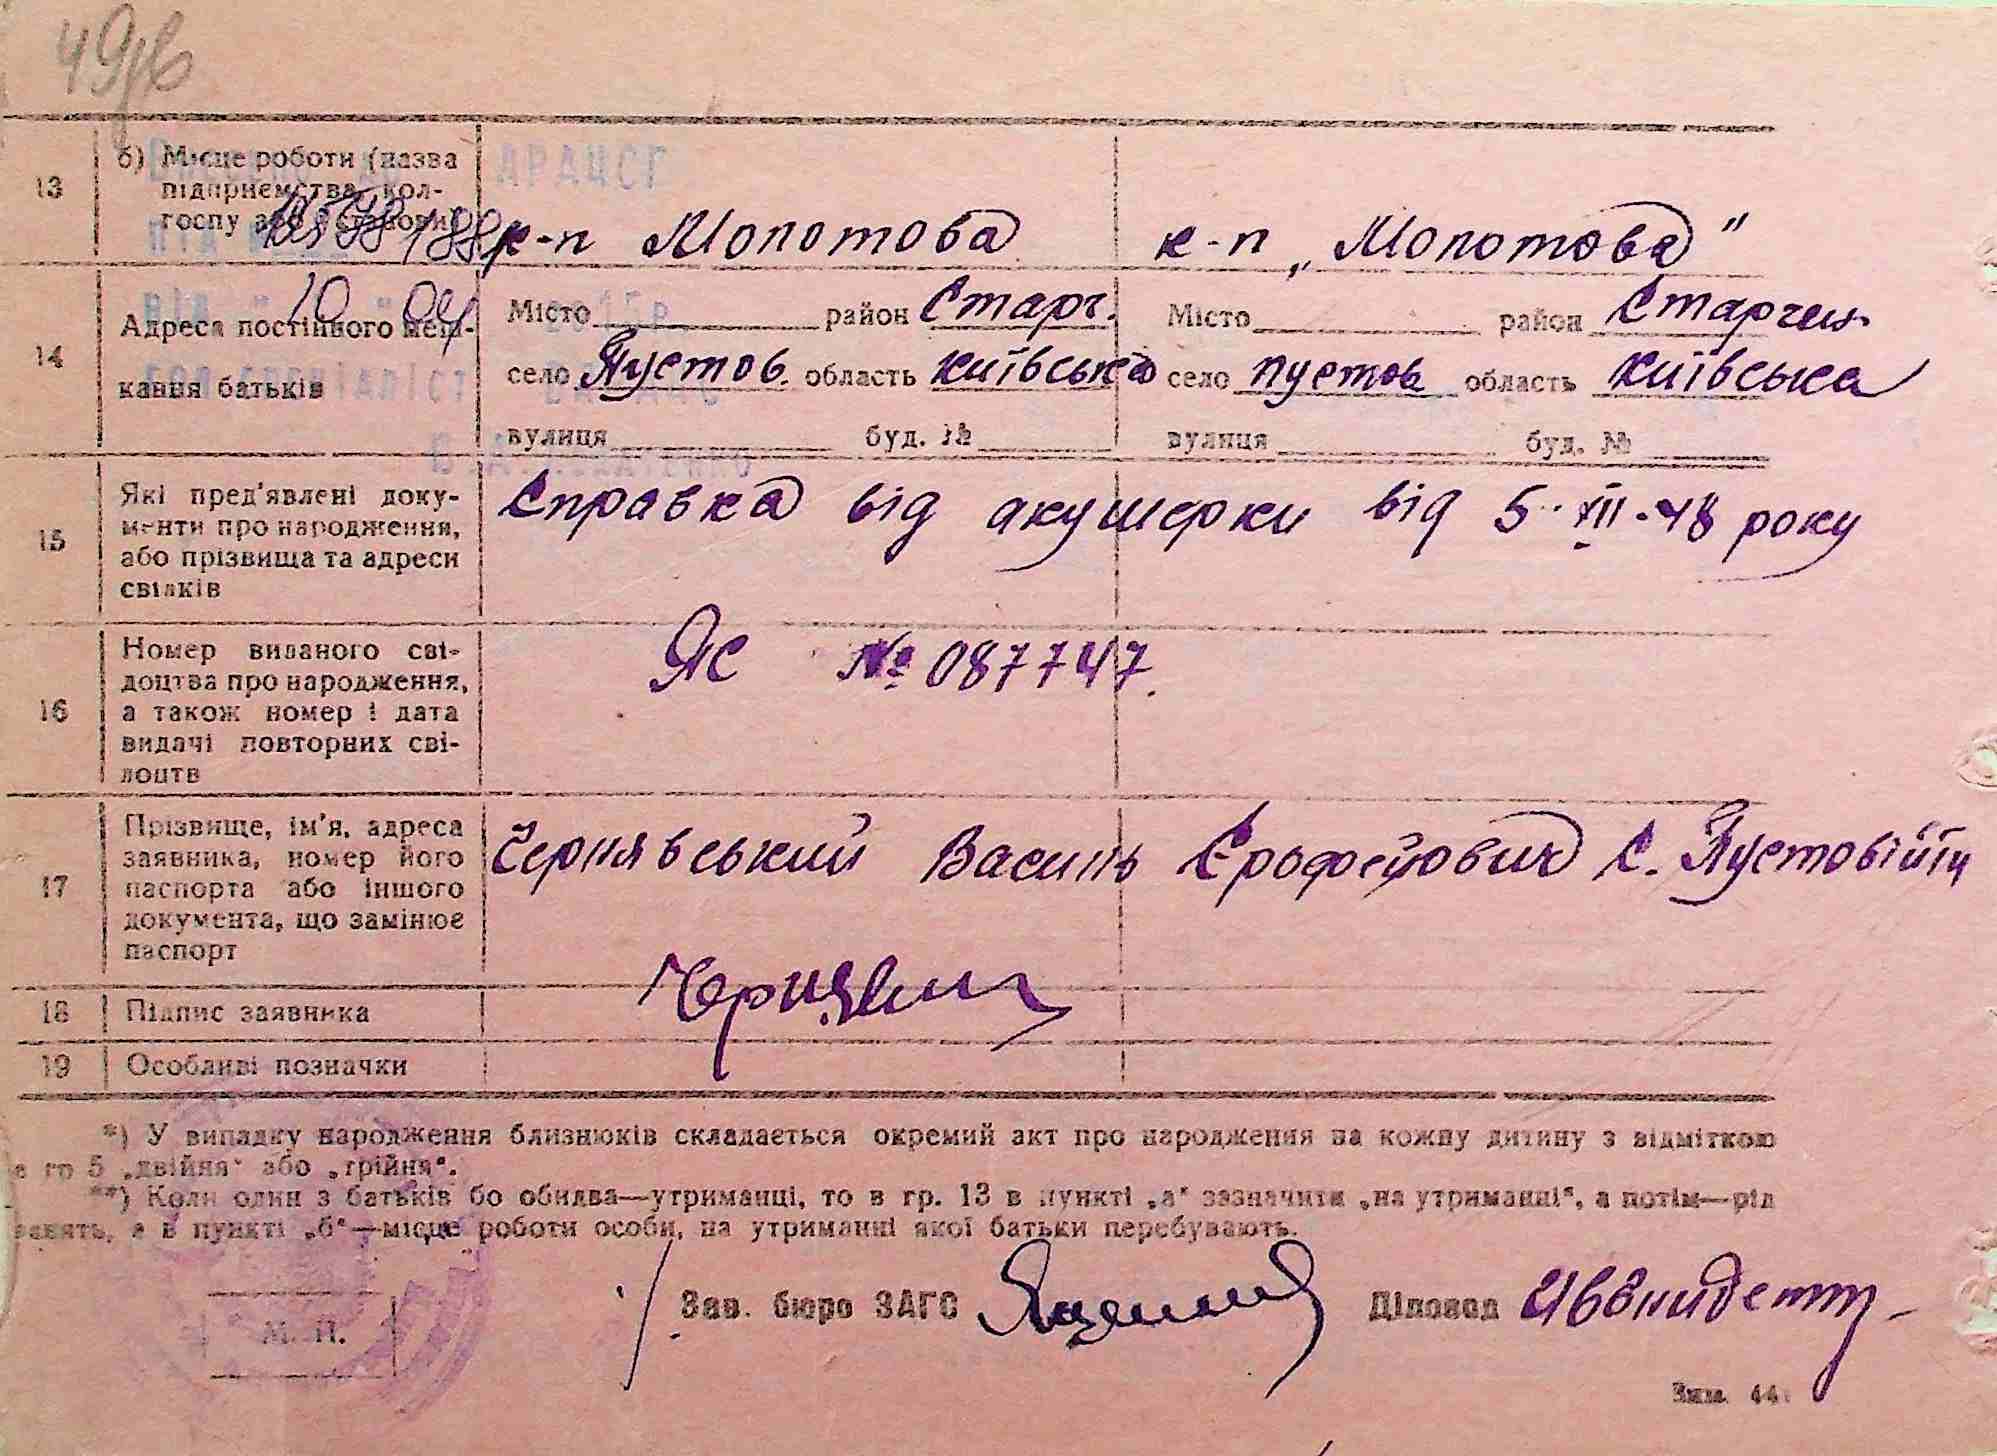 13
б) Місце роботи (назва
підприємства, кол-
госпу або установи)
к-п Молотова
к-п „Молотова"
14
Адреса постійного меш-
кання батьків
Місто район Старч.
село Пустов. область Київська
вулиця буд. №
Місто район Старчен.
село Пустов область Київська
вулиця буд. №
15
Які пред'явлені доку-
менти про народження,
або прізвища та адреси
свідків
Справка від акушерки від 5.XII.48 року
16
Номер виданого сві-
доцтва про народження,
а також номер і дата
видачі повторних сві-
доцтв
ЯС № 087747.
17
Прізвище, ім'я, адреса
заявника, номер його
паспорта або іншого
документа, що замінює
паспорт
Чернявський Василь Єрофейович с. Пустовійти
18
Підпис заявника
19
Особливі позначки
*) У випадку народження близнюків складається окремий акт про народження на кожну дитину з відміткою
в гр 5 „двійня" або „трійня".
**) Коли один з батьків бо обидва—утриманці, то в гр. 13 в пункті „а" зазначити „на утриманні", а потім—рід
занять, а в пункті „б"—місце роботи особи, на утриманні якої батьки перебувають.
М. П.
Зав. бюро ЗАГС
Діловод
Зам. 44